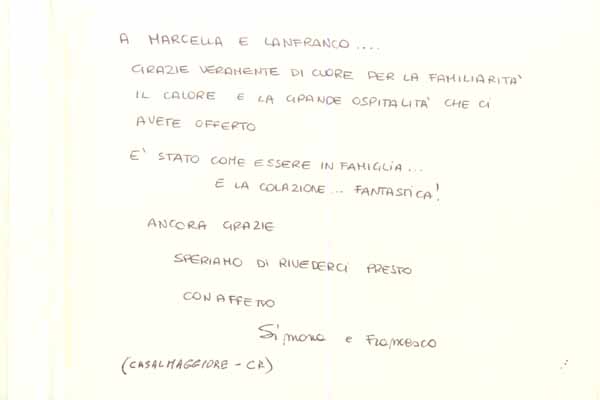 A MARCELLA E LANFRANCO....
GRAZIE VERAMENTE DI CUORE PER LA FAMILIARITA'
IL CALORE E LA GRANDE OSPITALITA' CHE CI
AVETE OFFERTO
E' STATO COME ESSERE IN FAMIGLIA...
E LA COLAZIONE... FANTASTICA!
ANCORA GRAZIE
SPERIAMO DI RIVEDERCI PRESTO
CON AFFETTO
Simona e Francesco
(CASALMAGGIORE - CR)